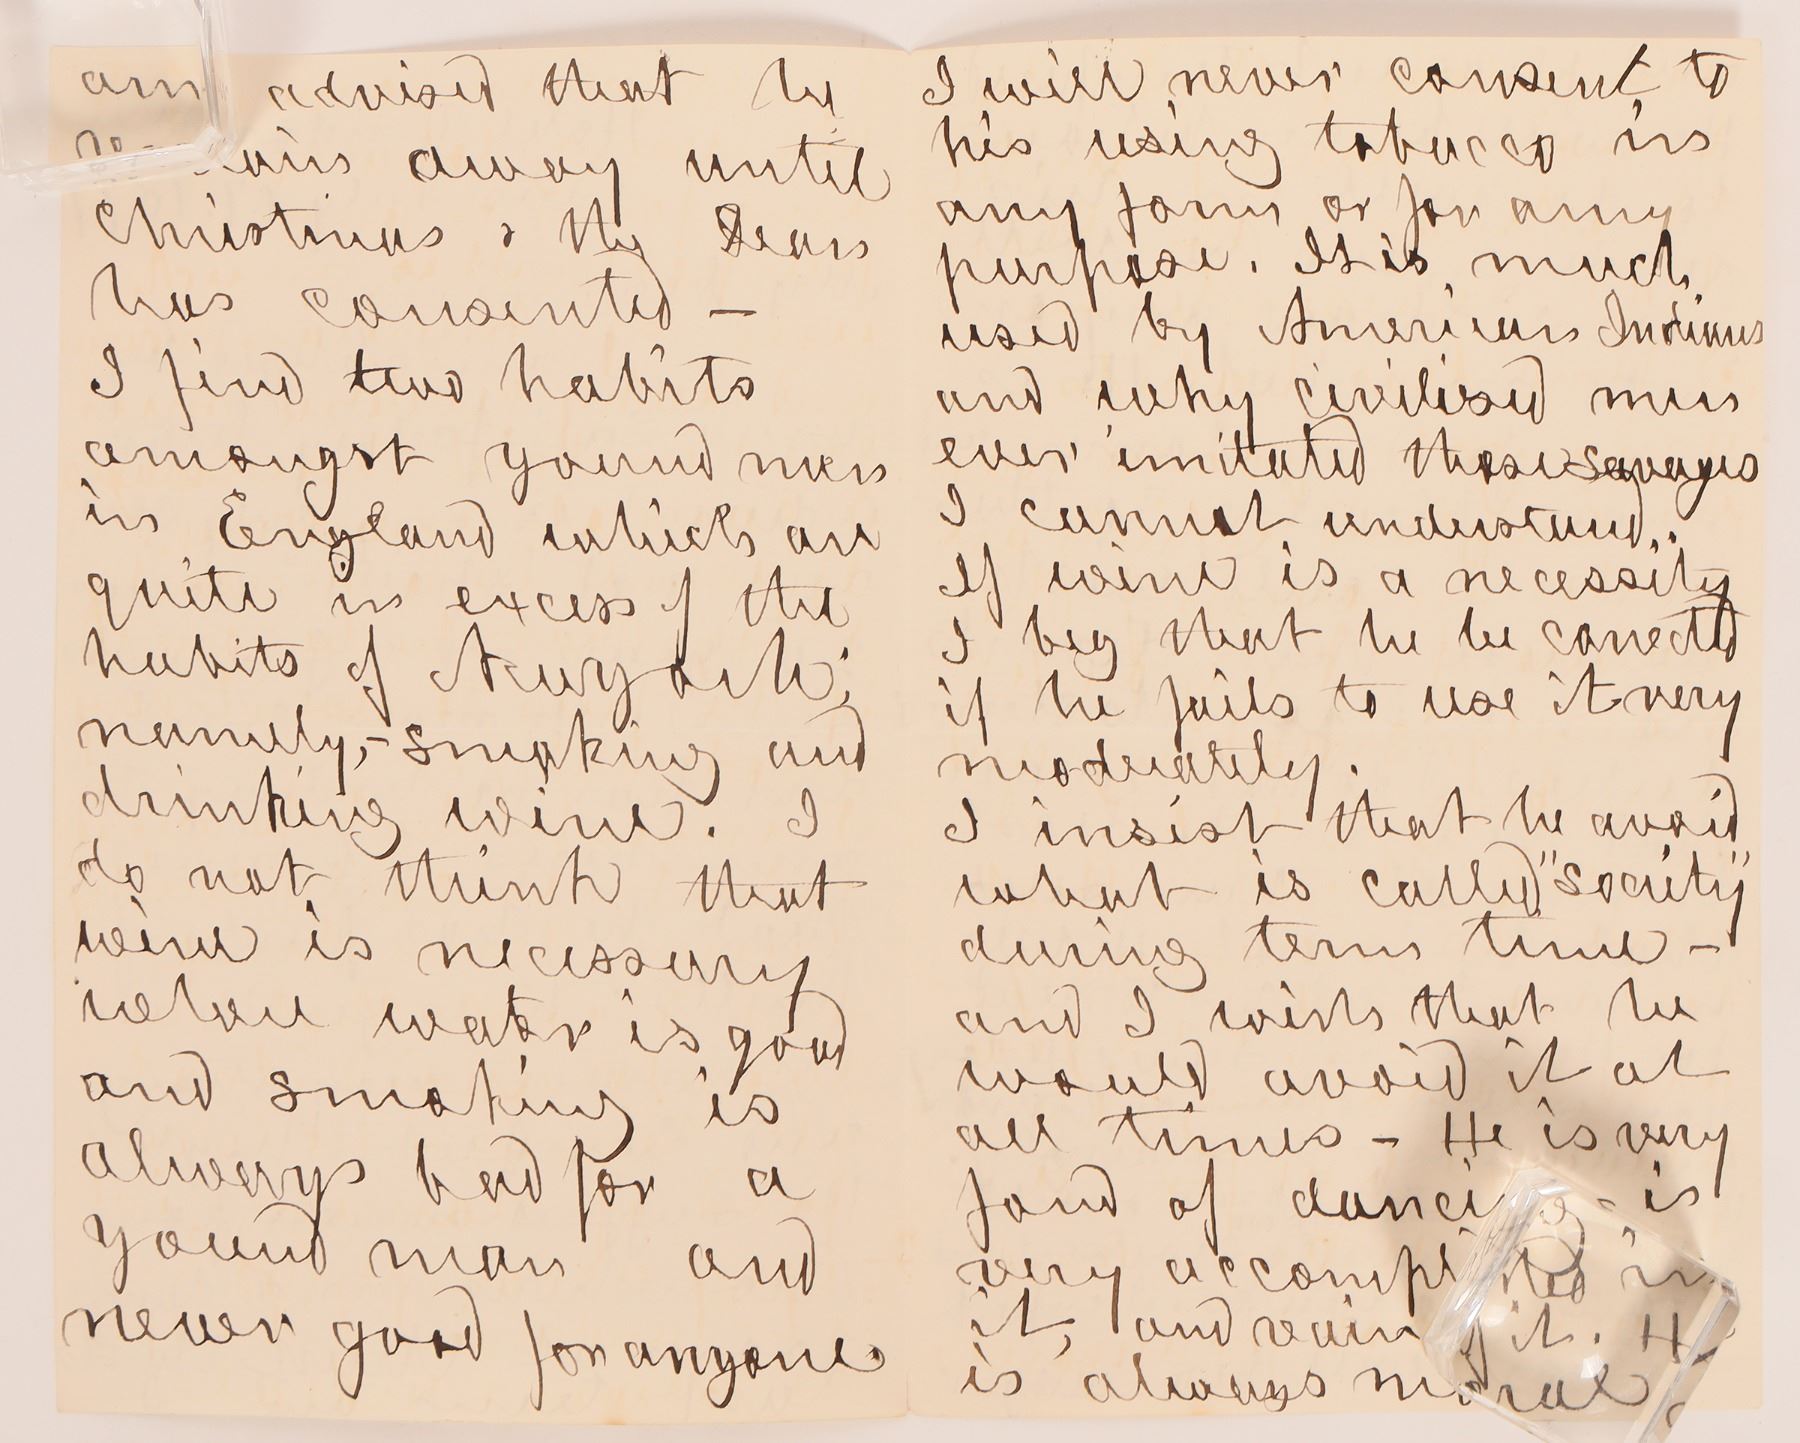 am advised that he
remains away until
Christmas & the Dean
has consented —
I find two habits
amongst yound men
in England which are
quite in excess of the
habits of New York;
namely,- smoking and
drinking wine. I
do not think that
wine is necessary
where water is good
and smoking is
always bad for a
yound man and
never good for anyone.
I will never consent to
his using tobacco in
any form or for any
purpose. It is much
used by American Indians
and why civilised men
ever imitated those savages
I cannot understand..
If wine is a necessity
I beg that he be corrected
if he fails to use it very
moderately.
I insist that he avoid
what is called "society"
during term time —
and I wish that he
would avoid it at
all times — He is very
fond of dancing - is
very accomplished in
it, and vain of it. He
is always moral,